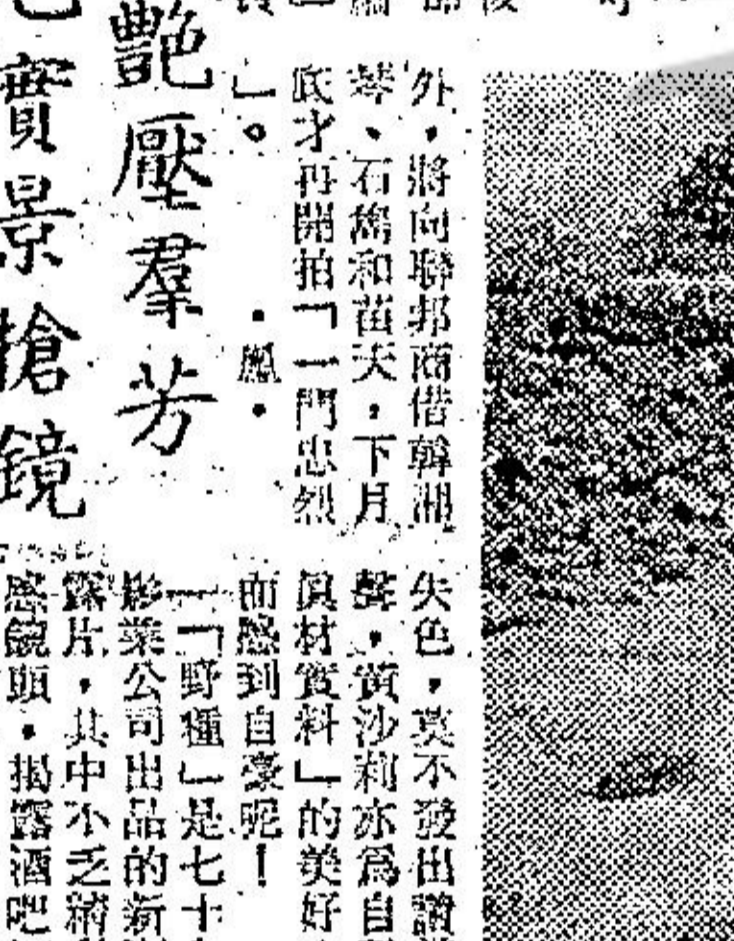 外，將向聯邦商借韓湘
琴、石雋和苗天，下月
底才再開拍「一門忠烈
」。
・鳳・
艷壓羣芳
實景搶鏡
失色，莫不發出讚
聲，黃沙莉亦為自
眞材實料」的美好
而感到自豪呢！
「野種」是七十
影業公司出品的新
露片，其中不乏
感鏡頭，揭露酒吧